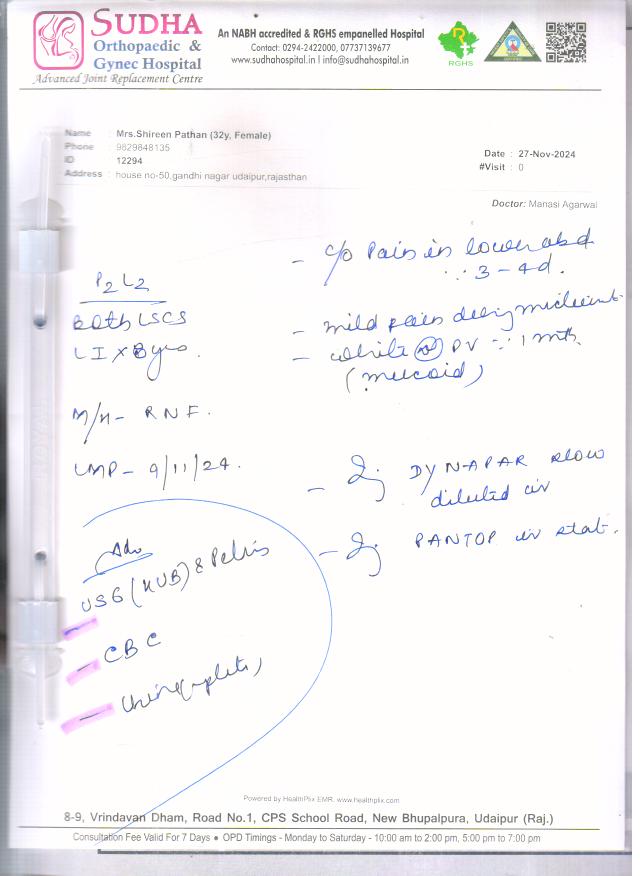 SUDHA
Orthopaedic &
Gynec Hospital
Advanced Joint Replacement Centre
An NABH accredited & RGHS empanelled Hospital
Contact: 0294-2422000, 07737139677
www.sudhahospital.in | info@sudhahospital.in
RGHS
Name : Mrs.Shireen Pathan (32y, Female)
Phone : 9829848135
ID : 12294
Address : house no-50,gandhi nagar udaipur,rajasthan
Date : 27-Nov-2024
#Visit : 0
Doctor: Manasi Agarwal
- c/o Pain in lower abd
∵ 3-4d.
P2L2
Both LSCS
LI x 8 yrs.
- mild pain during
- white PV ∵ 1 mth
(mucoid)
M/H- RNF.
LMP- 9/11/24.
- Inj DYNAPAR slow
diluted iv
- Inj PANTOP iv stat.
Adv
USG (KUB) & Pelvis
- CBC
- Urine complete
Powered by HealthPlix EMR. www.healthplix.com
8-9, Vrindavan Dham, Road No.1, CPS School Road, New Bhupalpura, Udaipur (Raj.)
Consultation Fee Valid For 7 Days ● OPD Timings - Monday to Saturday - 10:00 am to 2:00 pm, 5:00 pm to 7:00 pm